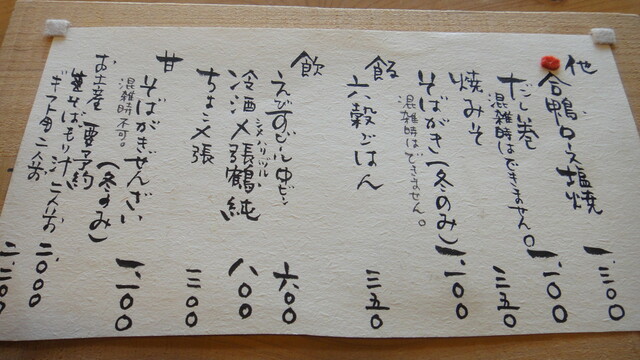 他
合鴨ロース塩焼 一、三〇〇
だし巻 一、一〇〇
混雑時はできません。
焼みそ 三五〇
そばがき(冬のみ) 一、一〇〇
混雑時はできません。
飯
六穀ごはん 三五〇
飲
えびすビール中ビン 六〇〇
シメハリツル
冷酒〆張鶴純 八〇〇
ちょこ〆張 三〇〇
甘
そばがきぜんざい(冬のみ) 一、一〇〇
混雑時不可。
お土産 要予約
生そばもり汁二人前 二、〇〇〇
ギフト用二人前 二、三〇〇